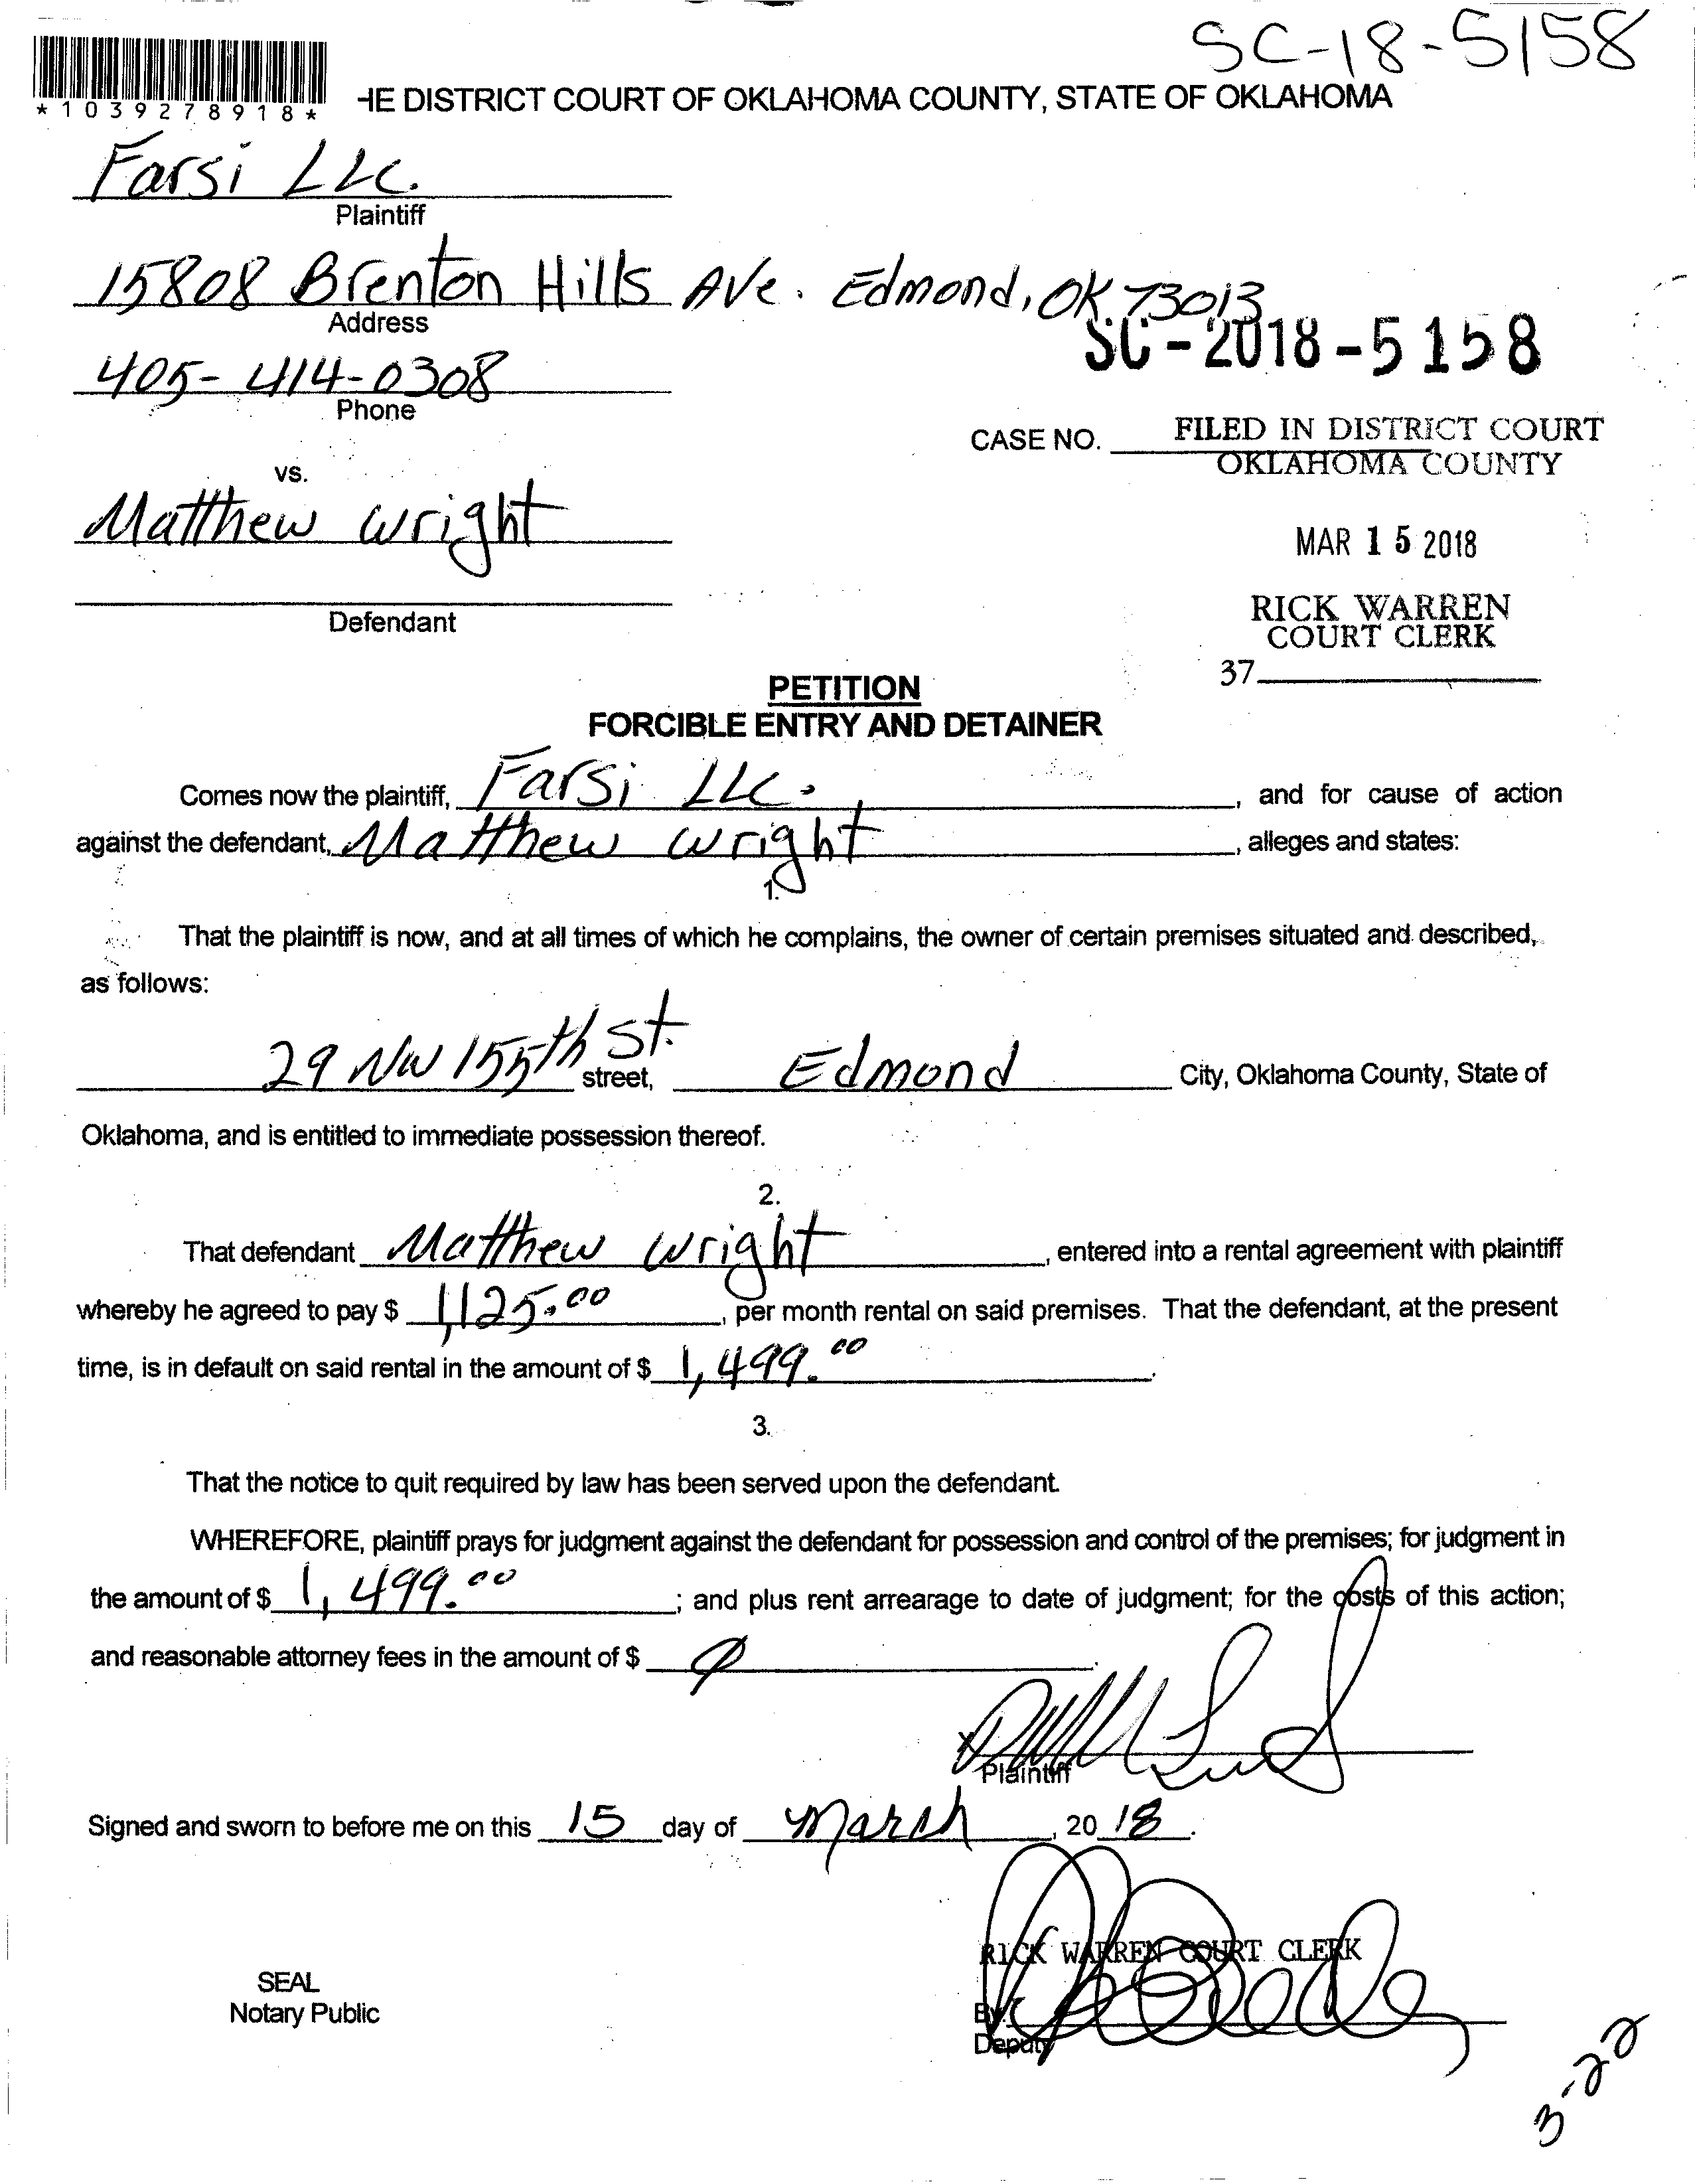 SC-18-5158
*1039278918*
HE DISTRICT COURT OF OKLAHOMA COUNTY, STATE OF OKLAHOMA
Farsi LLC.
Plaintiff
15808 Brenton Hills Ave. Edmond, OK 73013
Address
SC-2018-5158
405-414-0308
Phone
CASE NO. FILED IN DISTRICT COURT
OKLAHOMA COUNTY
vs.
Matthew Wright
MAR 15 2018
Defendant
RICK WARREN
COURT CLERK
37
PETITION
FORCIBLE ENTRY AND DETAINER
Comes now the plaintiff, Farsi LLC., and for cause of action
against the defendant, Matthew Wright, alleges and states:
1.
That the plaintiff is now, and at all times of which he complains, the owner of certain premises situated and described,
as follows:
29 NW 155th St. street, Edmond City, Oklahoma County, State of
Oklahoma, and is entitled to immediate possession thereof.
2.
That defendant Matthew Wright, entered into a rental agreement with plaintiff
whereby he agreed to pay $ 1,125.00, per month rental on said premises. That the defendant, at the present
time, is in default on said rental in the amount of $ 1,499.00.
3.
That the notice to quit required by law has been served upon the defendant.
WHEREFORE, plaintiff prays for judgment against the defendant for possession and control of the premises; for judgment in
the amount of $ 1,499.00; and plus rent arrearage to date of judgment; for the costs of this action;
and reasonable attorney fees in the amount of $
X
Plaintiff
Signed and sworn to before me on this 15 day of March, 20 18.
RICK WARREN COURT CLERK
SEAL
Notary Public
By:
Deputy
3-22